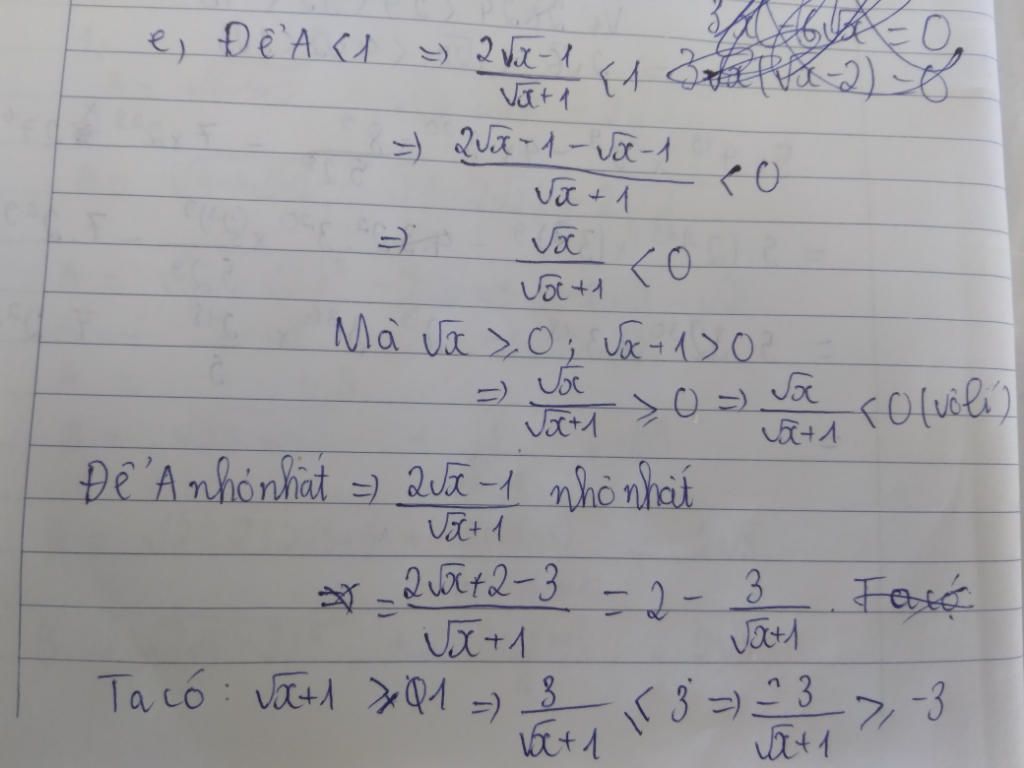 e, Để A < 1 => (2√x - 1)/(√x + 1) < 1
=> (2√x - 1 - √x - 1)/(√x + 1) < 0
=> √x/(√x + 1) < 0
Mà √x ⩾ 0 ; √x + 1 > 0
=> √x/(√x + 1) ⩾ 0 => √x/(√x + 1) < 0 (vô lí)
Để A nhỏ nhất => (2√x - 1)/(√x + 1) nhỏ nhất
= (2√x + 2 - 3)/(√x + 1) = 2 - 3/(√x + 1) .
Ta có : √x + 1 ⩾ 1 => 3/(√x + 1) ⩽ 3 => -3/(√x + 1) ⩾ -3